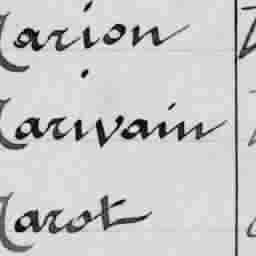 Marion
Marivain
Marot